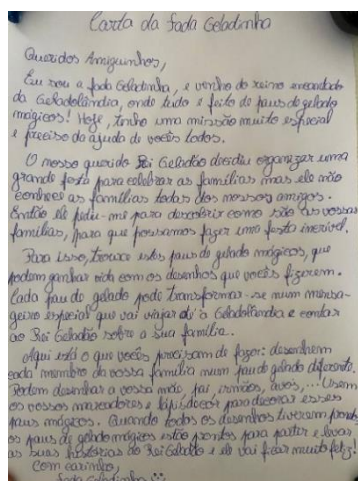 Carta da Fada Geladinha
Queridos Amiguinhos,
Eu sou a fada Geladinha, e venho do reino encantado
da Geladolândia, onde tudo é feito de paus de gelado
mágicos! Hoje, tenho uma missão muito especial
e preciso da ajuda de vocês todos.
O nosso querido Rei Geladão decidiu organizar uma
grande festa para celebrar as famílias mas ele não
conhece as famílias todas dos nossos amigos.
Então ele pediu-me para descobrir como são as vossas
famílias, para que possamos fazer uma festa incrível.
Para isso, trouxe estes paus de gelado mágicos, que
podem ganhar vida com os desenhos que vocês fizerem.
Cada pau de gelado pode transformar-se num mensa-
geiro especial que vai viajar até a Geladolândia e contar
ao Rei Geladão sobre a sua família.
Aqui está o que vocês precisam de fazer: desenhem
cada membro da vossa família num pau de gelado diferente.
Podem desenhar a vossa mãe, pai, irmãos, avós,... Usem
os vossos marcadores e lápis de cor para decorar esses
paus mágicos. Quando todos os desenhos tiverem prontos
os paus de gelado mágicos estão prontos para partir e levar
as suas histórias ao Rei Geladão e ele vai ficar muito feliz!
Com carinho,
Fada Geladinha